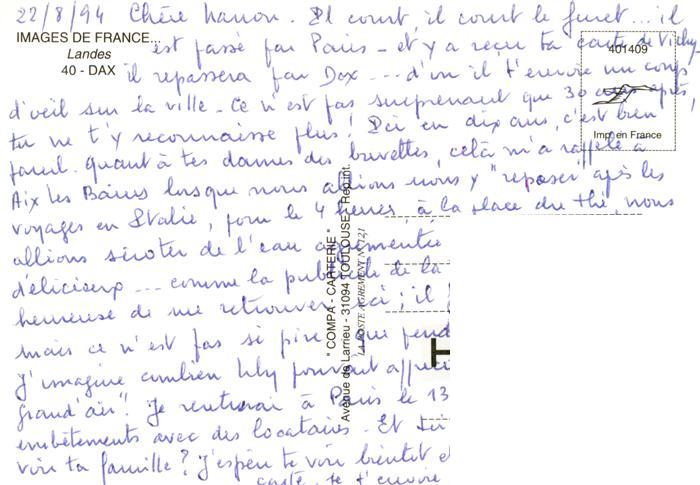 22/8/94 Chère Manon. Il court, il court le furet... il
IMAGES DE FRANCE...
Landes
40 - DAX
est passé par Paris - et y a reçu ta carte de Vichy -
il repassera par Dax ... d'où il t'envoie un coup
d'oeil sur la ville. Ce n'est pas surprenant que 30 ans après,
tu ne t'y reconnaisse plus! Ici en dix ans, c'est bien
pareil. Quant à tes dames des buvettes, celà m'a rappelé à
Aix les Bains lorsque nous allions nous y "reposer" après les
voyages en Italie, pour le 4 heures à la place du thé, nous
allions siroter de l'eau agrémentée
d'élixirs ... comme la publicité de la
heureuse de me retrouver ici; il
mais ce n'est pas si pire que pend
J'imagine combien Lily pouvait appréci
grand'air". Je rentrerai à Paris le 13
embêtements avec des locataires. Et
voir ta famille? J'espère te voir bientôt e
carte. Je t'envoie
401409
Imp. en France
" COMPA - CARTERIE "
Avenue de Larrieu - 31094 TOULOUSE - Rep. int.
LA POSTE AGREMENT N° 121